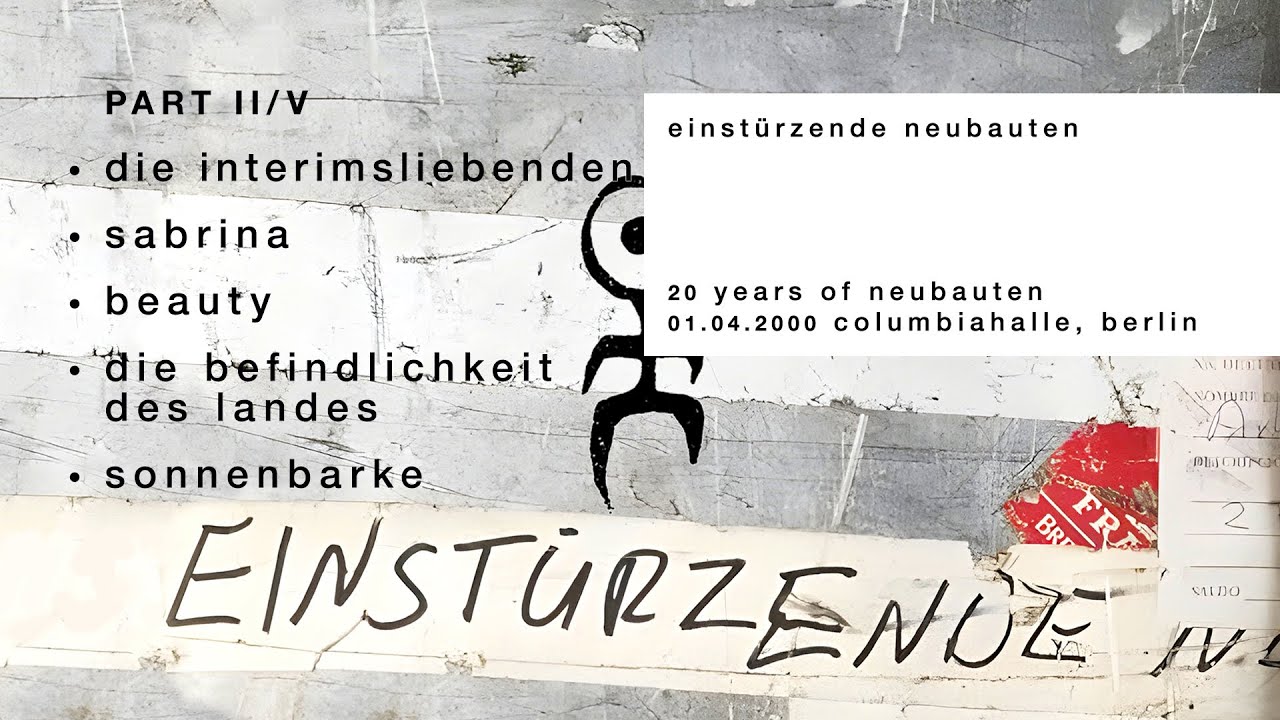 PART II/V
• die interimsliebenden
• sabrina
• beauty
• die befindlichkeit
des landes
• sonnenbarke
einstürzende neubauten
20 years of neubauten
01.04.2000 columbiahalle, berlin
EINSTÜRZENDE
2